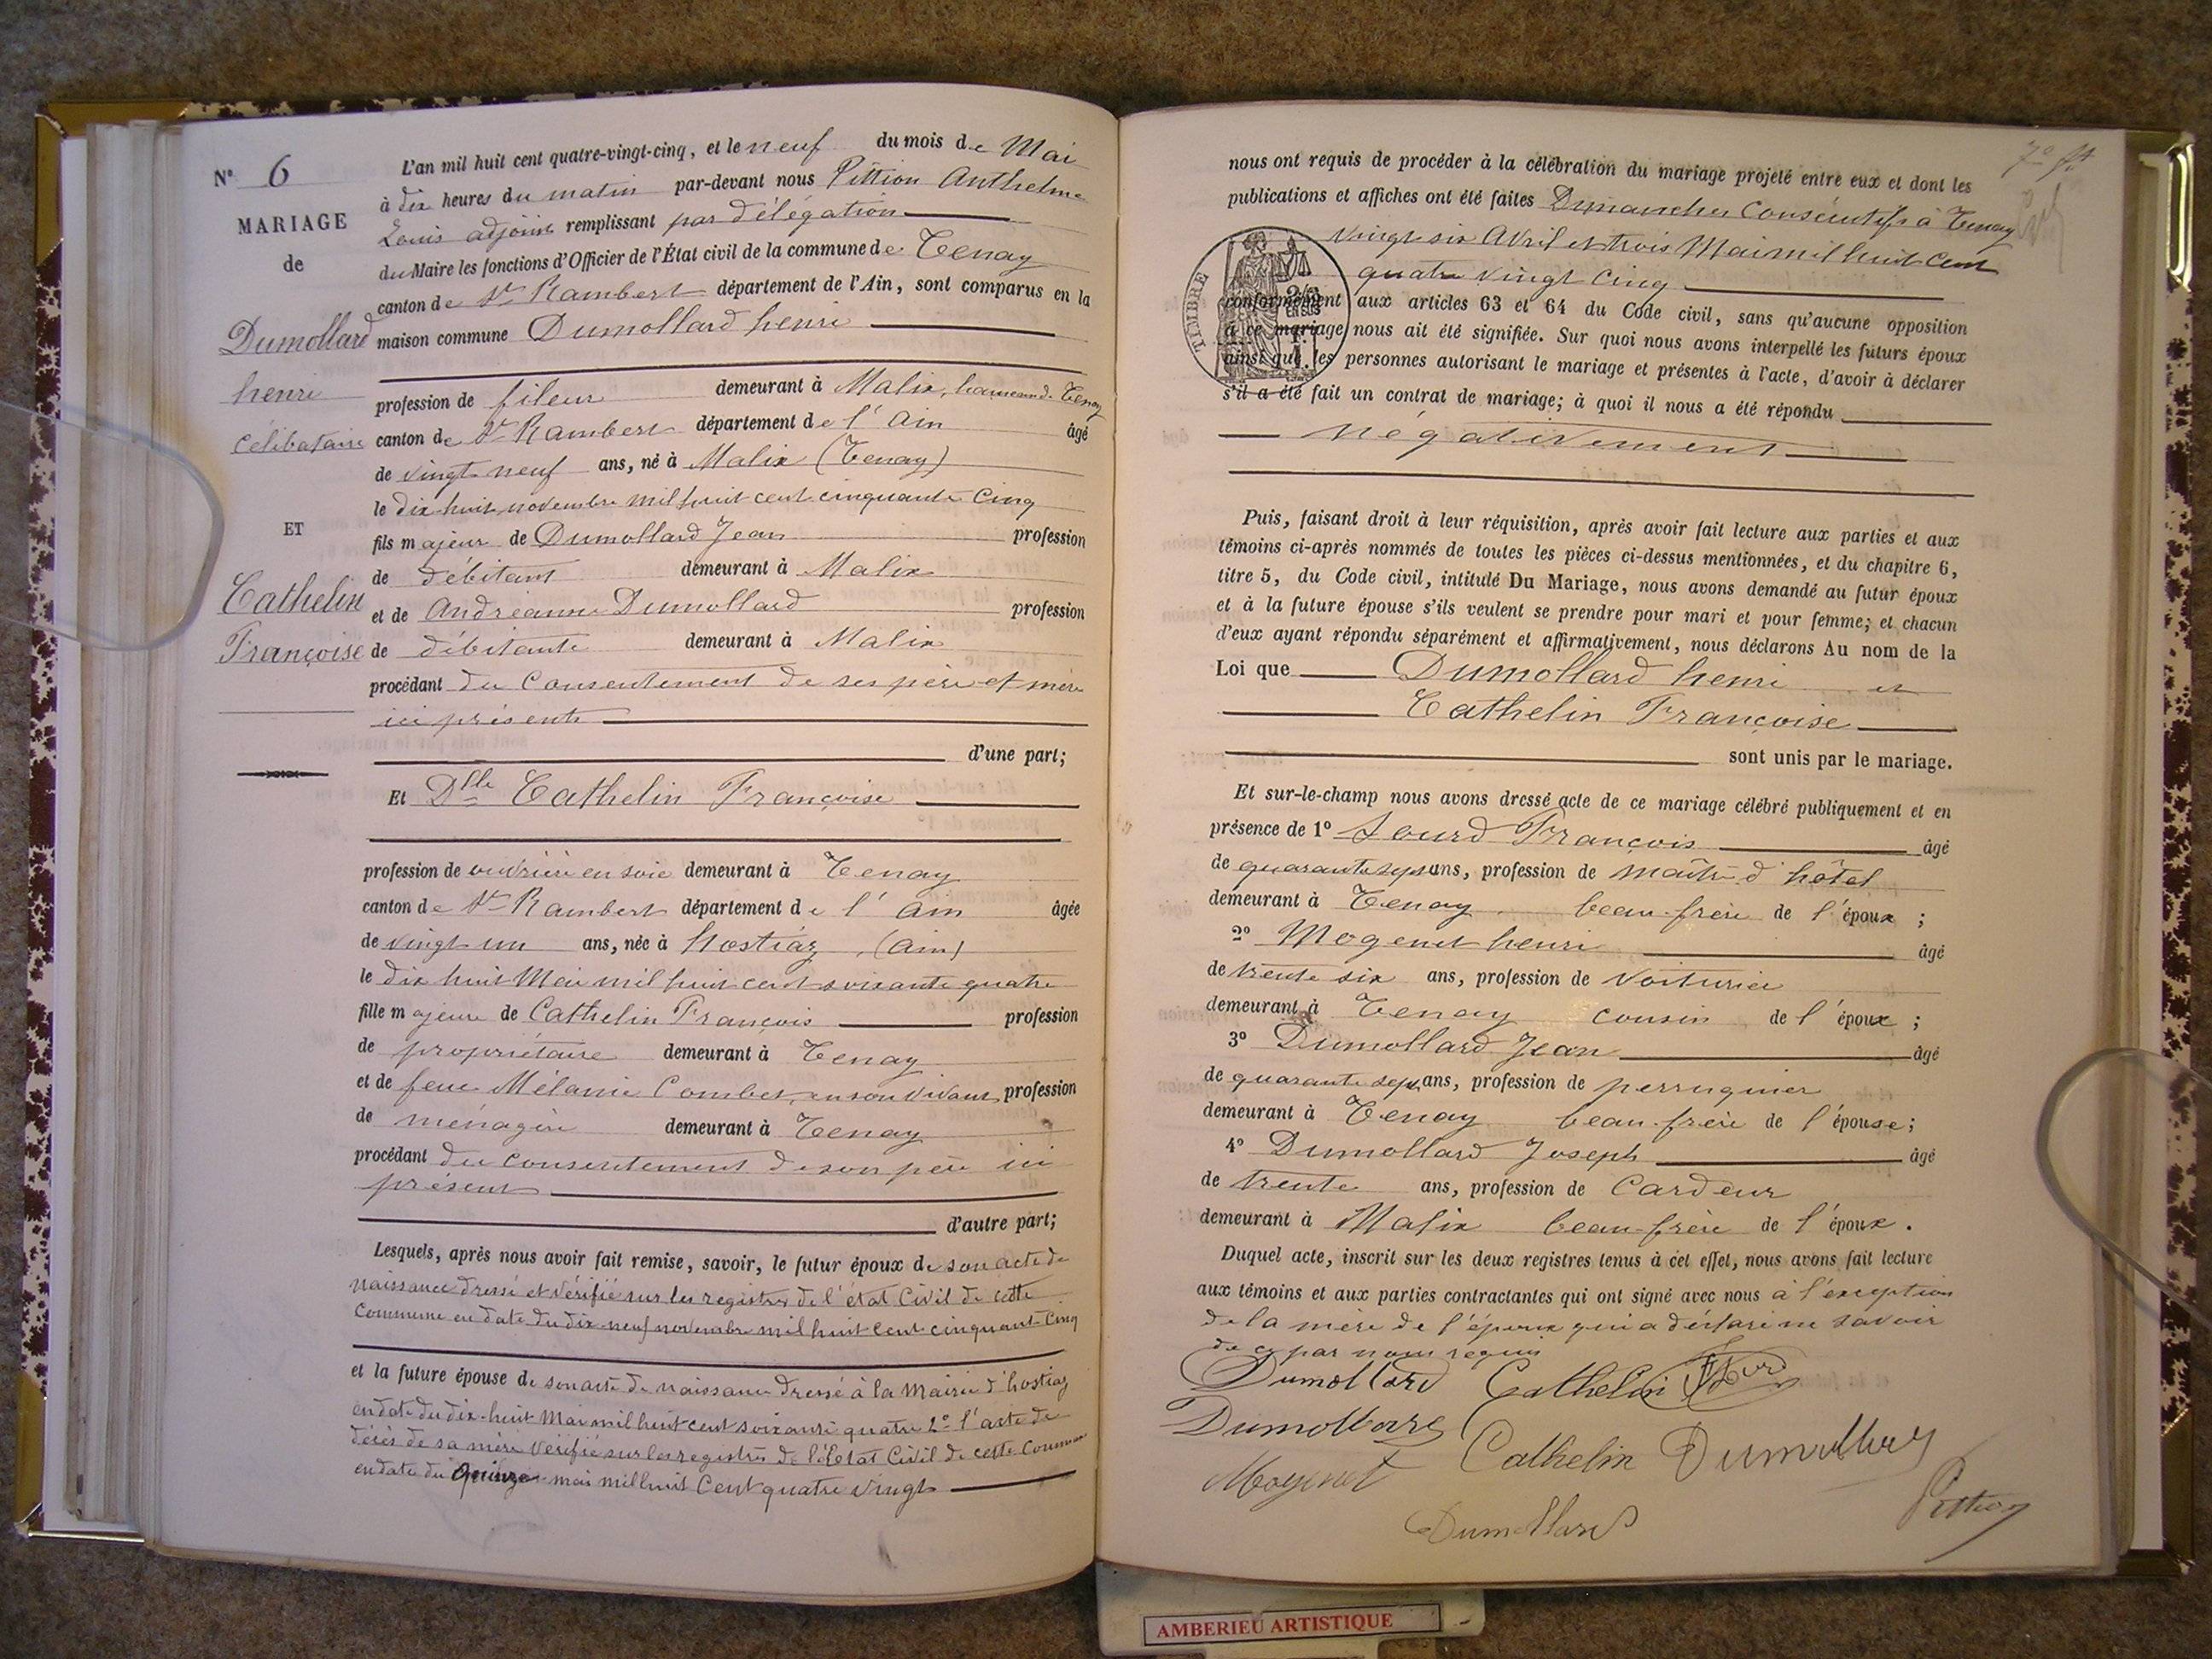 N° 6
MARIAGE
de
Dumollard
henri
célibataire
ET
Cathelin
Françoise
L'an mil huit cent quatre-vingt-cinq, et le neuf du mois de Mai
à dix heures du matin par-devant nous Pittion Anthelme
Louis adjoint remplissant par délégation
du Maire les fonctions d'Officier de l'État civil de la commune de Tenay
canton de St Rambert département de l'Ain, sont comparus en la
maison commune Dumollard henri
profession de fileur demeurant à Malix, hameau de Tenay
canton de St Rambert département de l'Ain âgé
de vingt neuf ans, né à Malix (Tenay)
le dix huit novembre mil huit cent cinquante cinq
fils majeur de Dumollard Jean profession
de débitant demeurant à Malix
et de Andréanne Dumollard profession
de débitante demeurant à Malix
procédant du consentement de ses père et mère
ici présents
d'une part;
Et Dlle Cathelin Françoise
profession de ouvrière en soie demeurant à Tenay
canton de St Rambert département de l'Ain âgée
de vingt un ans, née à hostiaz (Ain)
le dix huit Mai mil huit cent soixante quatre
fille majeure de Cathelin François profession
de propriétaire demeurant à Tenay
et de feue Mélanie Combet, en son vivant, profession
de ménagère demeurant à Tenay
procédant du consentement de son père ici
présent
d'autre part;
Lesquels, après nous avoir fait remise, savoir, le futur époux de son acte de
naissance dressé et vérifié sur les registres de l'état Civil de cette
Commune en date du dix-neuf novembre mil huit cent cinquant Cinq
et la future épouse de son acte de naissance dressé à la Mairie d'hostiaz
en date du dix-huit Mai mil huit cent soixante quatre 2° l'acte de
décès de sa mère vérifié sur les registres de l'État Civil de cette Commune
en date du quinze mai mil huit Cent quatre vingt
7e ft
nous ont requis de procéder à la célébration du mariage projeté entre eux et dont les
publications et affiches ont été faites Dimanches Consécutifs à Tenay
vingt six Avril et trois Mai mil huit cent
quatre vingt Cinq
TIMBRE
conformément aux articles 63 et 64 du Code civil, sans qu'aucune opposition
à ce mariage nous ait été signifiée. Sur quoi nous avons interpellé les futurs époux
ainsi que les personnes autorisant le mariage et présentes à l'acte, d'avoir à déclarer
s'il a été fait un contrat de mariage; à quoi il nous a été répondu
négativement
Puis, faisant droit à leur réquisition, après avoir fait lecture aux parties et aux
témoins ci-après nommés de toutes les pièces ci-dessus mentionnées, et du chapitre 6,
titre 5, du Code civil, intitulé Du Mariage, nous avons demandé au futur époux
et à la future épouse s'ils veulent se prendre pour mari et pour femme; et chacun
d'eux ayant répondu séparément et affirmativement, nous déclarons Au nom de la
Loi que Dumollard henri et
Cathelin Françoise
sont unis par le mariage.
Et sur-le-champ nous avons dressé acte de ce mariage célébré publiquement et en
présence de 1° Lourd François âgé
de quarante sept ans, profession de maître d'hôtel
demeurant à Tenay beau-frère de l'époux ;
2° Mogenet henri âgé
de trente six ans, profession de voiturier
demeurant à Tenay cousin de l'époux ;
3° Dumollard Jean âgé
de quarante sept ans, profession de perruquier
demeurant à Tenay beau-frère de l'épouse;
4° Dumollard Joseph âgé
de trente ans, profession de Cardeur
demeurant à Malix beau-frère de l'époux.
Duquel acte, inscrit sur les deux registres tenus à cet effet, nous avons fait lecture
aux témoins et aux parties contractantes qui ont signé avec nous à l'exception
de la mère de l'époux qui a déclaré ne savoir
de ce par nous requis
Dumollard Cathelin
Dumollard Cathelin Dumollard
Mogenet Pittion
Dumollard
AMBERIEU ARTISTIQUE